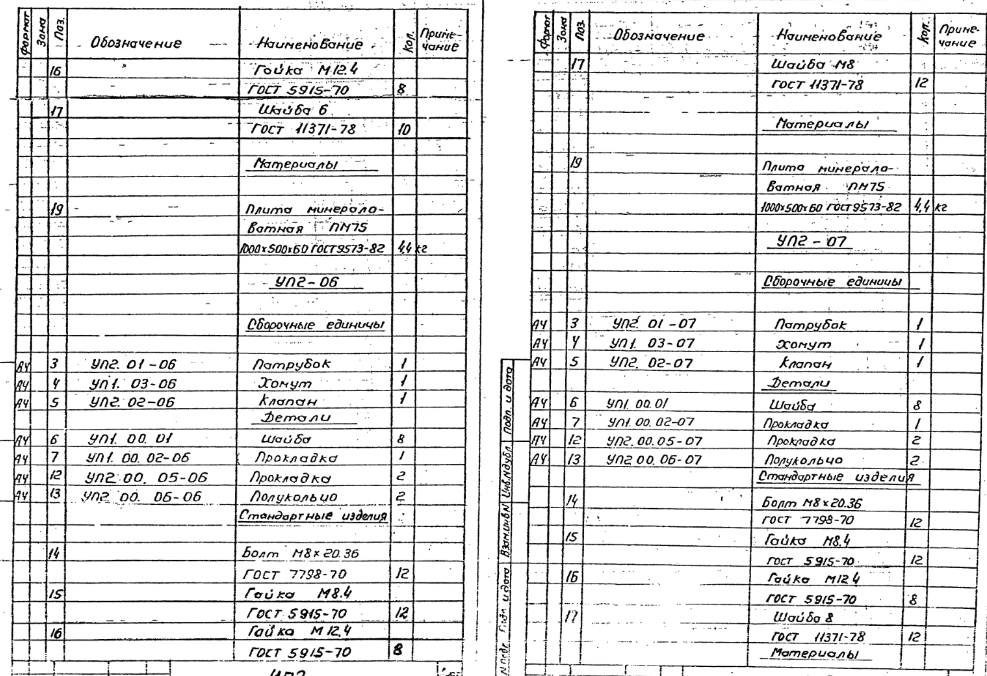 Формат Зона Поз. Обозначение Наименование Кол. Приме-
чание
16 Гайка М12.4
ГОСТ 5915-70 8
17 Шайба 6
ГОСТ 11371-78 10
Материалы
19 Плита минерало-
ватная ПМ75
1000х500х60 ГОСТ9573-82 4,4 кг
УП2-06
Сборочные единицы
А4 3 УП2. 01-06 Патрубок 1
А4 4 УП1. 03-06 Хомут 1
А4 5 УП2. 02-06 Клапан 1
Детали
А4 6 УП1. 00. 01 Шайба 8
А4 7 УП1. 00. 02-06 Прокладка 1
А4 12 УП2. 00. 05-06 Прокладка 2
А4 13 УП2. 00. 06-06 Полукольцо 2
Стандартные изделия
14 Болт М8х20.36
ГОСТ 7798-70 12
15 Гайка М8.4
ГОСТ 5915-70 12
16 Гайка М12.4
ГОСТ 5915-70 8
Формат Зона Поз. Обозначение Наименование Кол. Приме-
чание
17 Шайба М8
ГОСТ 11371-78 12
Материалы
19 Плита минерало-
ватная ПМ75
1000х500х60 ГОСТ9573-82 4,4 кг
УП2-07
Сборочные единицы
А4 3 УП2. 01-07 Патрубок 1
А4 4 УП1. 03-07 Хомут 1
А4 5 УП2. 02-07 Клапан 1
Детали
А4 6 УП1. 00.01 Шайба 8
А4 7 УП1. 00. 02-07 Прокладка 1
А4 12 УП2. 00. 05-07 Прокладка 2
А4 13 УП2 00. 06-07 Полукольцо 2
Стандартные изделия
14 Болт М8х20.36
ГОСТ 7798-70 12
15 Гайка М8.4
ГОСТ 5915-70 12
16 Гайка М12.4
ГОСТ 5915-70 8
17 Шайба 8
ГОСТ 11371-78 12
Материалы
Подп. и дата
Инв.№дубл.
Взам.инв№
Подп. и дата